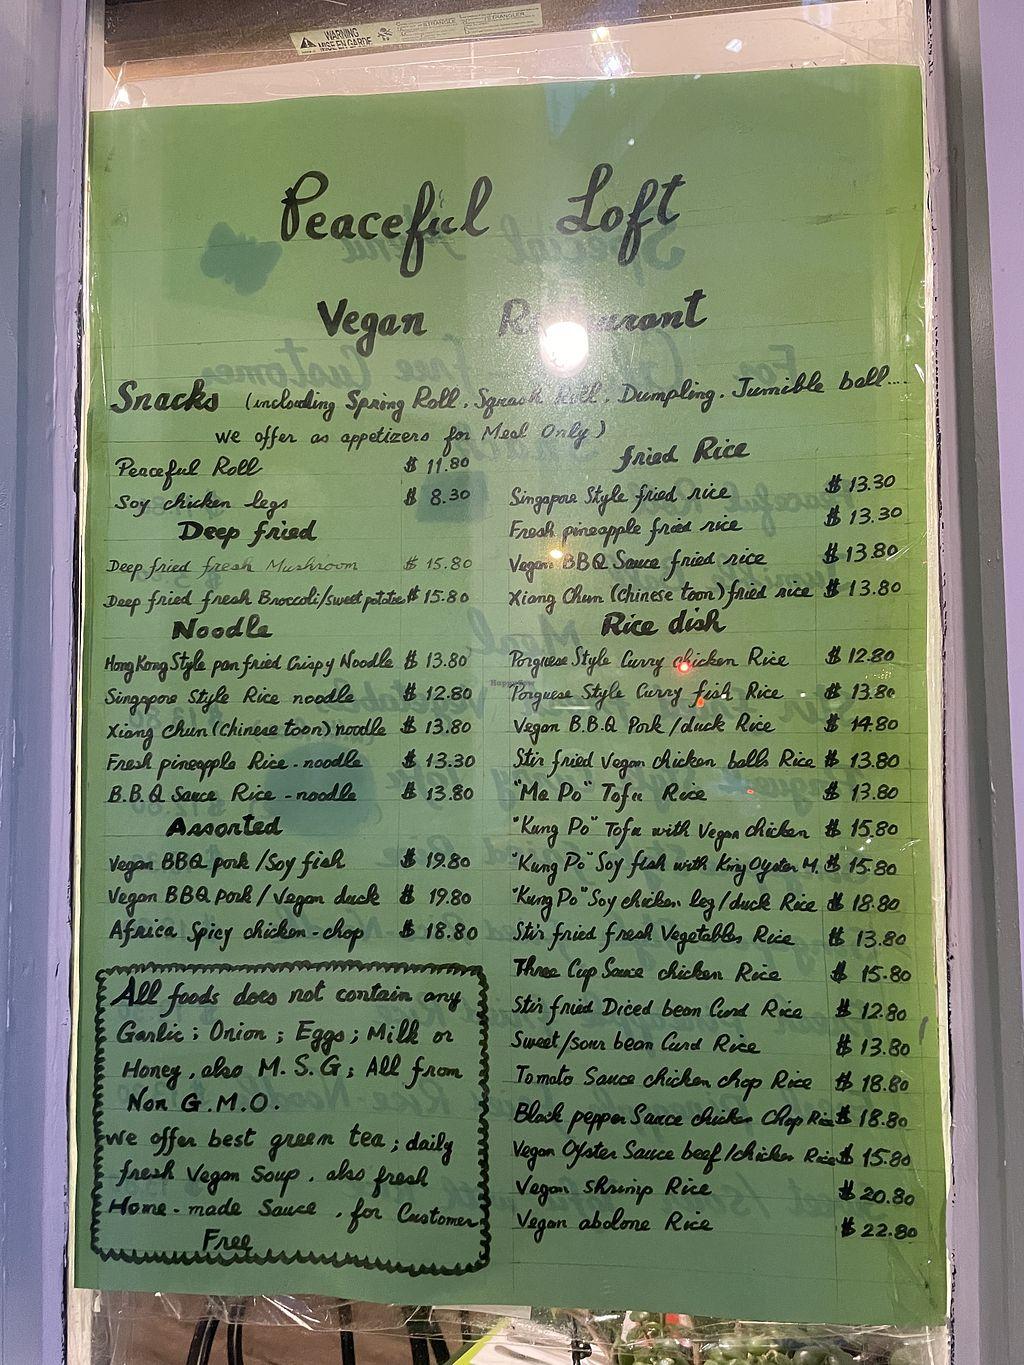 WARNING
MISE EN GARDE
Peaceful Loft
Vegan
Snacks (including Spring Roll, Squash Roll, Dumpling, Jumible ball....
we offer as appetizers for Meal Only)
Peaceful Roll $ 11.80
Soy chicken legs $ 8.30
Deep fried
Deep fried fresh Mushroom $ 15.80
Deep fried fresh Broccoli/sweet potatoe $ 15.80
Noodle
Hong Kong Style pan fried Crispy Noodle $ 13.80
Singapore Style Rice noodle $ 12.80
Xiang Chun (Chinese toon) noodle $ 13.80
Fresh pineapple Rice-noodle $ 13.30
B.B.Q Sauce Rice-noodle $ 13.80
Assorted
Vegan BBQ pork/Soy fish $ 19.80
Vegan BBQ pork/Vegan duck $ 19.80
Africa Spicy chicken-chop $ 18.80
All foods does not contain any
Garlic; Onion; Eggs; Milk or
Honey, also M.S.G; All from
Non G.M.O.
we offer best green tea; daily
fresh Vegan Soup, also fresh
Home-made Sauce, for Customer
Free
fried Rice
Singapore Style fried rice $ 13.30
Fresh pineapple fried rice $ 13.30
Vegan BBQ Sauce fried rice $ 13.80
Xiang Chun (Chinese toon) fried rice $ 13.80
Rice dish
Porguese Style Curry chicken Rice $ 12.80
Porguese Style Curry fish Rice $ 13.80
Vegan B.B.Q Pork/duck Rice $ 14.80
Stir fried Vegan chicken balls Rice $ 13.80
"Ma Po" Tofu Rice $ 13.80
"Kung Po" Tofu with Vegan chicken $ 15.80
"Kung Po" Soy fish with King Oyster M. $ 15.80
"Kung Po" Soy chicken leg/duck Rice $ 18.80
Stir fried fresh Vegetables Rice $ 13.80
Three Cup Sauce chicken Rice $ 15.80
Stir fried Diced bean Curd Rice $ 12.80
Sweet/sour bean Curd Rice $ 13.80
Tomato Sauce chicken chop Rice $ 18.80
Black pepper Sauce chicken Chop Rice $ 18.80
Vegan Oyster Sauce beef/chicken Rice $ 15.80
Vegan shrimp Rice $ 20.80
Vegan abalone Rice $ 22.80